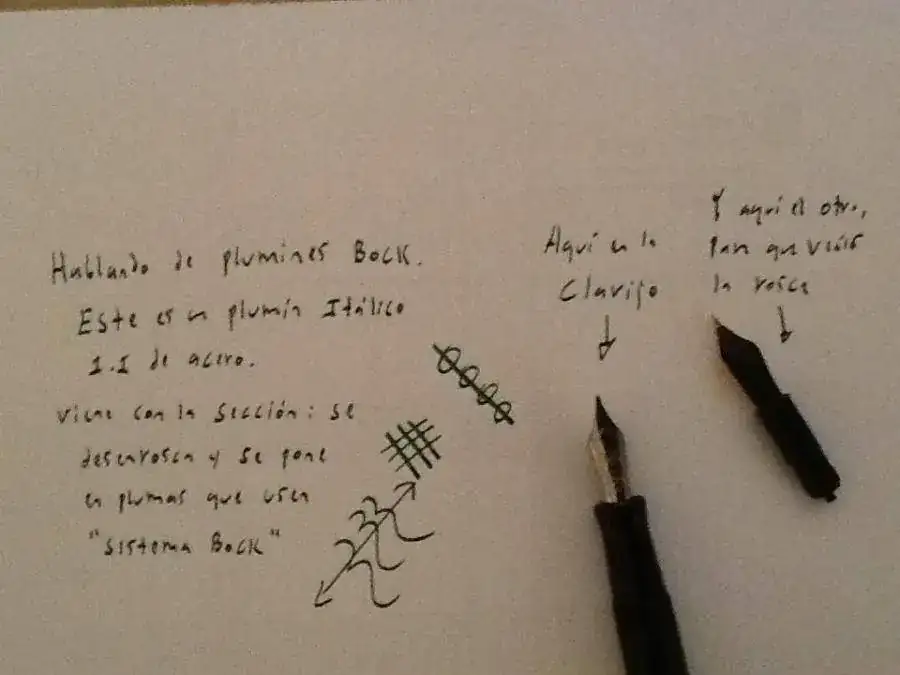 Hablando de plumines Bock.
Este es un plumín Itálico
1.1 de acero.
viene con la sección: se
desenrosca y se pone
en plumas que usen
"Sistema Bock"
Aquí en la
Clavijo
Y aquí el otro,
para que veáis
la rosca